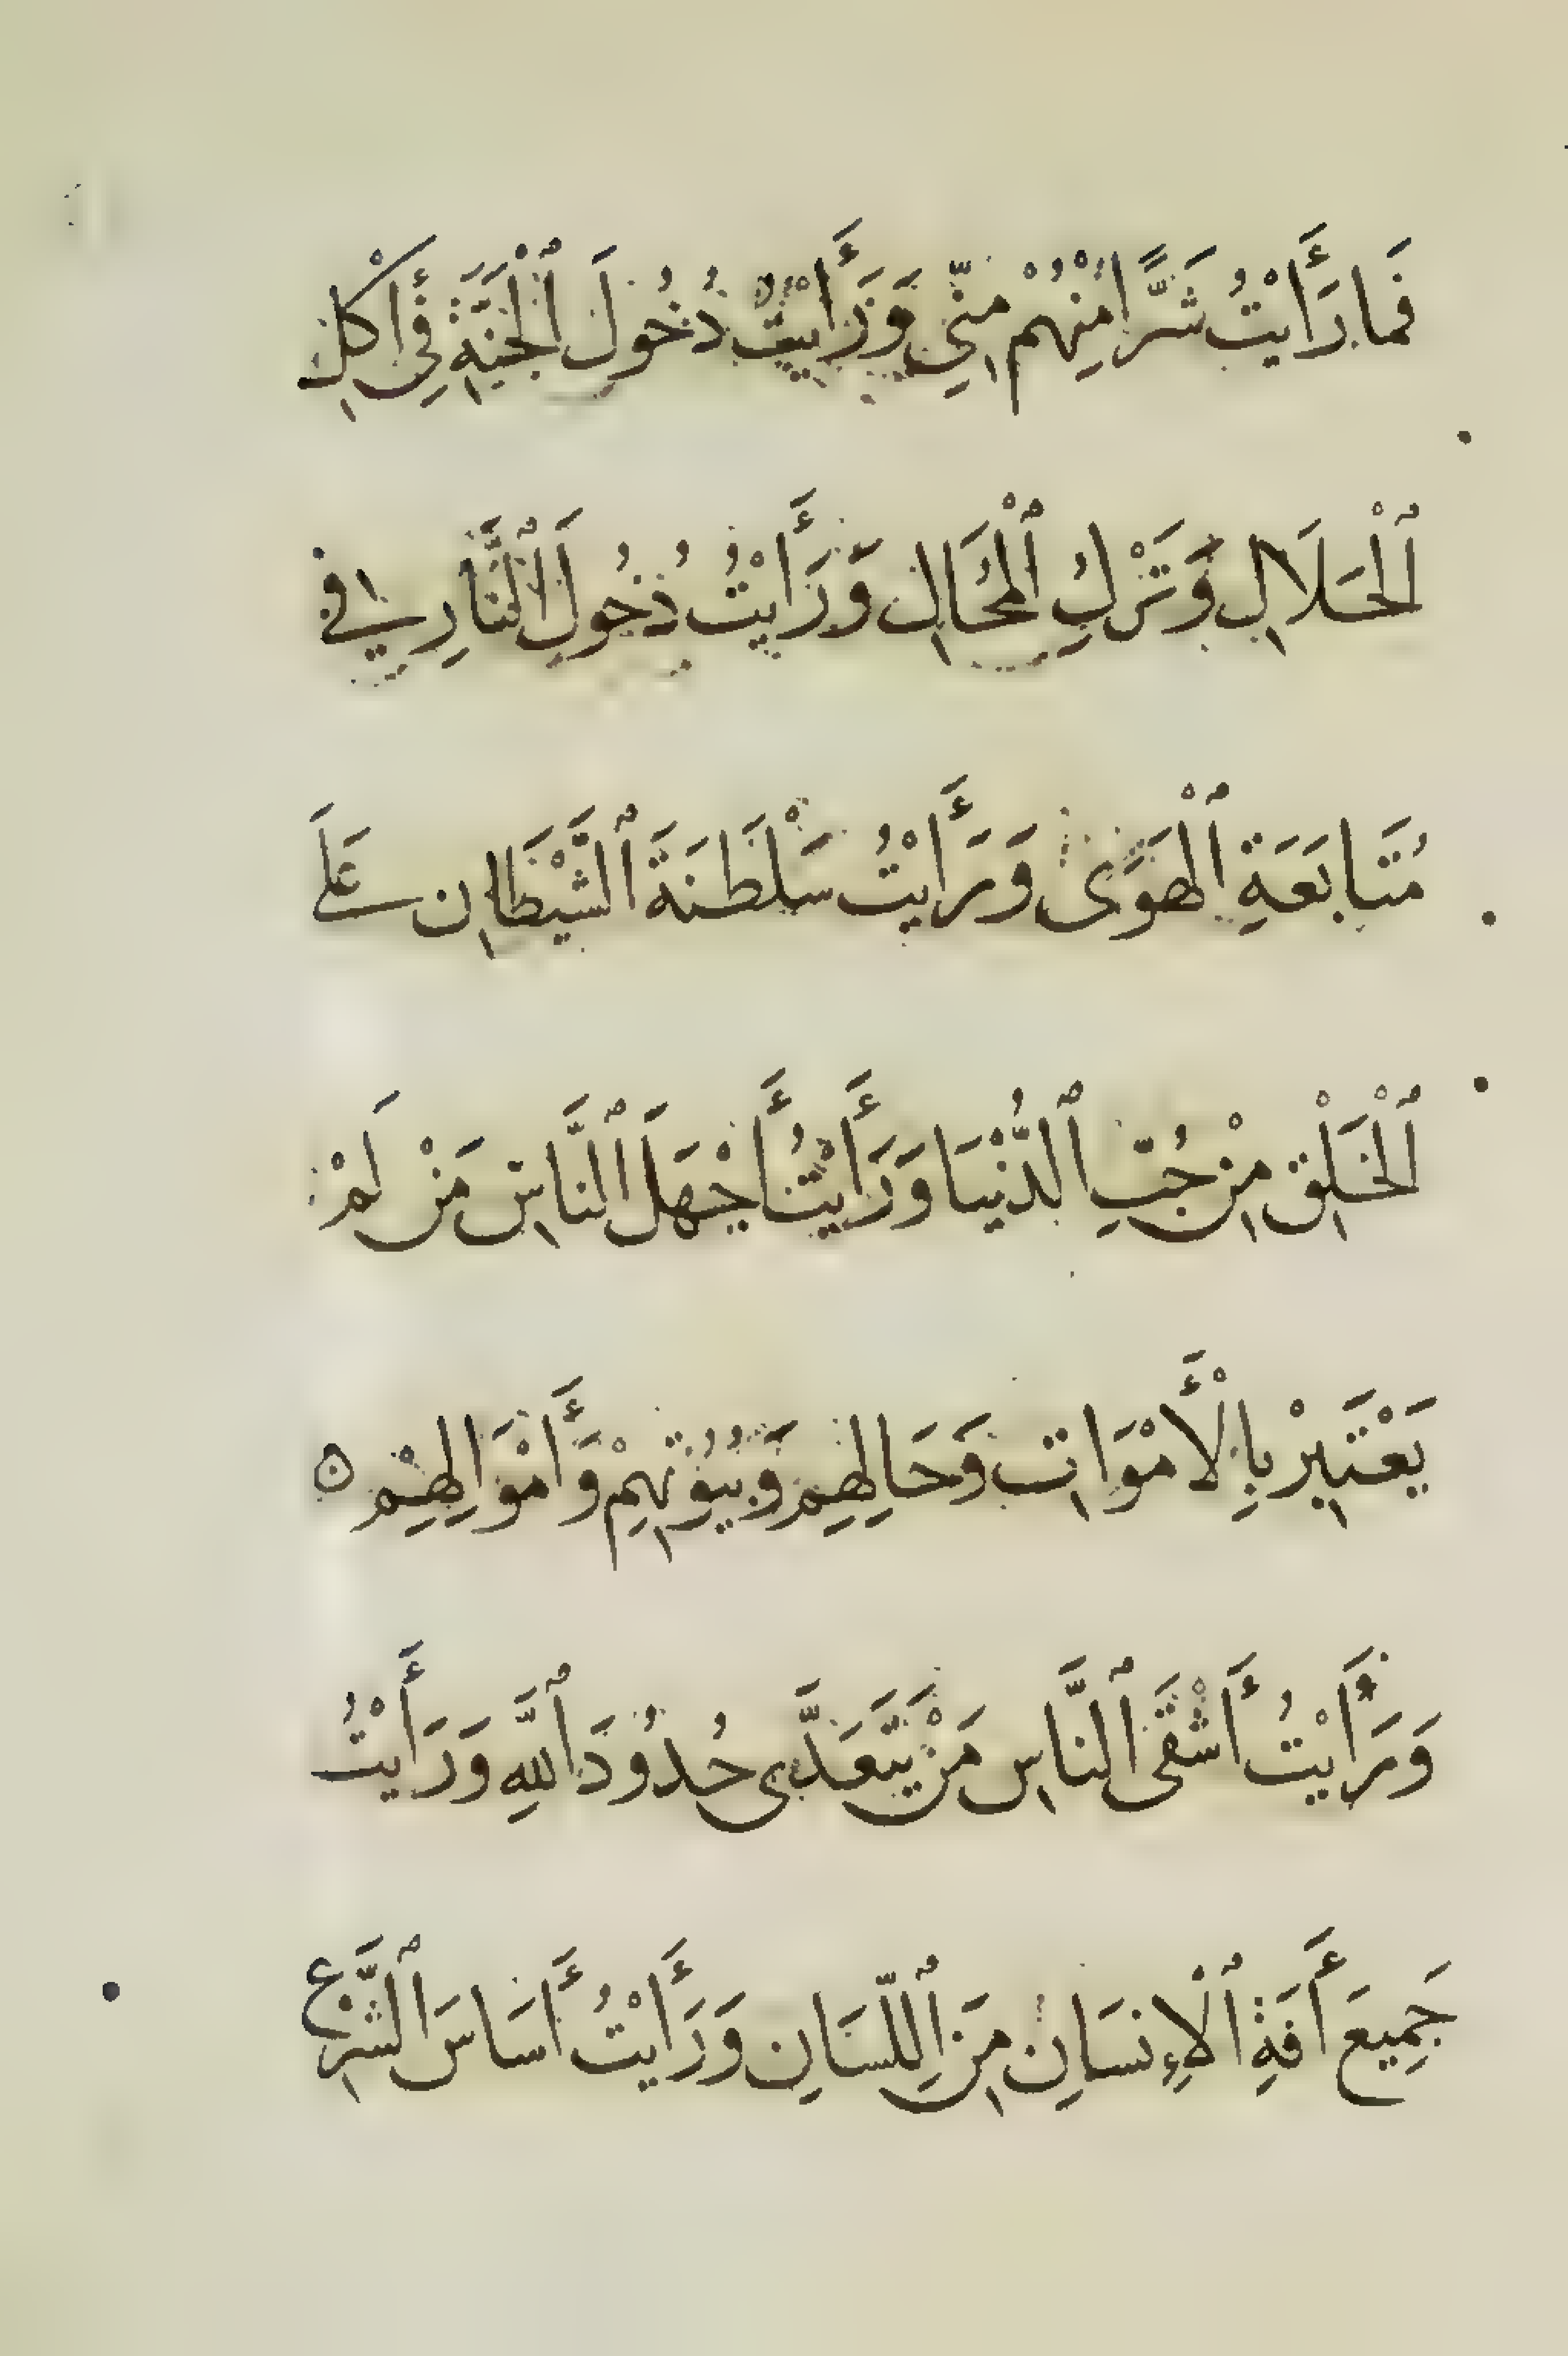 فَمَا رَأَيْتُ شَرًّا مِنْهُمْ مِنِّي وَرَأَيْتُ دُخُولَ ٱلْجَنَّةِ فِي أَكْلِ
ٱلْحَلَالِ وَتَرْكِ ٱلْمُحَالِ وَرَأَيْتُ دُخُولَ ٱلنَّارِ فِي
مُتَابَعَةِ ٱلْهَوَى وَرَأَيْتُ سَلْطَنَةَ ٱلشَّيْطَانِ عَلَى
ٱلْخَلْقِ مِنْ حُبِّ ٱلدُّنْيَا وَرَأَيْتُ أَجْهَلَ ٱلنَّاسِ مَنْ لَمْ
يَعْتَبِرْ بِالْأَمْوَاتِ وَحَالِهِم وَبُيُوتِهِمْ وَأَمْوَالِهِمْ ۝
وَرَأَيْتُ أَشْقَى ٱلنَّاسِ مَنْ يَتَعَدَّى حُدُودَ ٱللَّهِ وَرَأَيْتُ
جَمِيعَ أَفَةِ ٱلْإِنسَانِ مِنَ ٱللِّسَانِ وَرَأَيْتُ أَسَاسَ ٱلشَّرْعِ